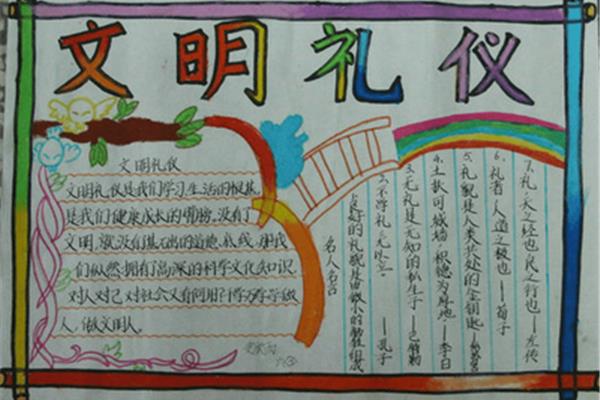 文明礼仪
文明礼仪
文明礼仪是我们学习、生活的根基,
是我们健康成长的臂膀。没有了
文明,就没有基础的道德底线,那我
们纵然拥有高深的科学文化知识,
对人对己,对社会又有何用?博学学做
人,做文明人。
名人名言
1.良好的礼貌是由微小的牺牲组成
2.不学礼,无以立。——孔子
3.无礼是无知的私生子——巴特勒
4.土扶可城墙,积德为厚地——李白
5.礼貌是人类共处的金钥匙——
6.礼者,人道之极也——荀子
7.礼,天之经也,民之行也——左传